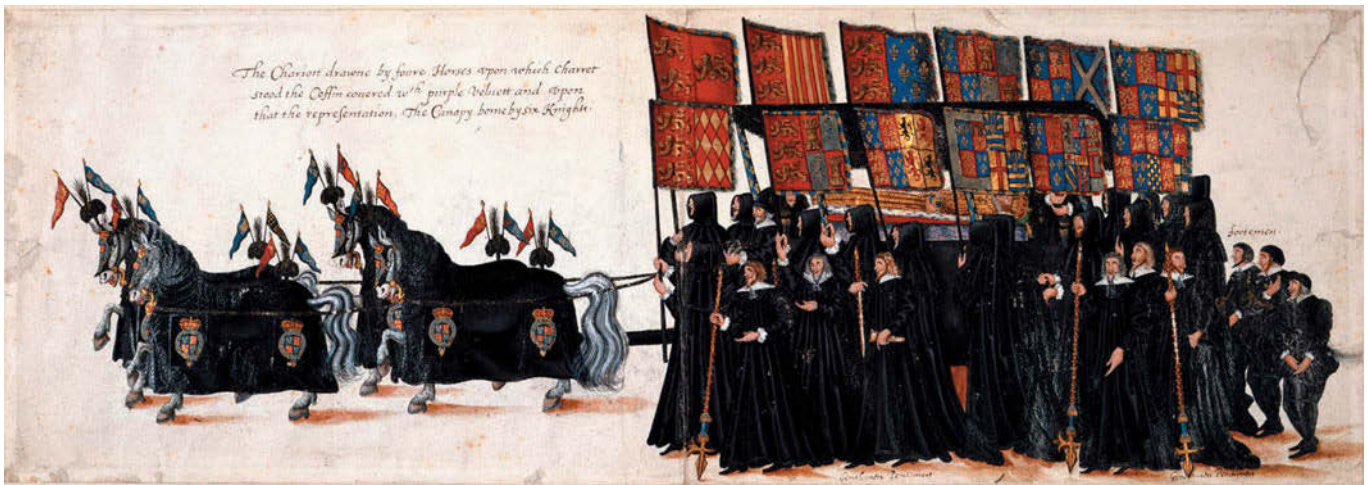 The Chariott drawne by foure Horses vpon which Charret
stood the Coffin couered wth purple Veluett and vpon
that the representation, The Canopy borne by six Knights.
footemen.
Gentlemen Pencioners
Gentlemen Pencioners